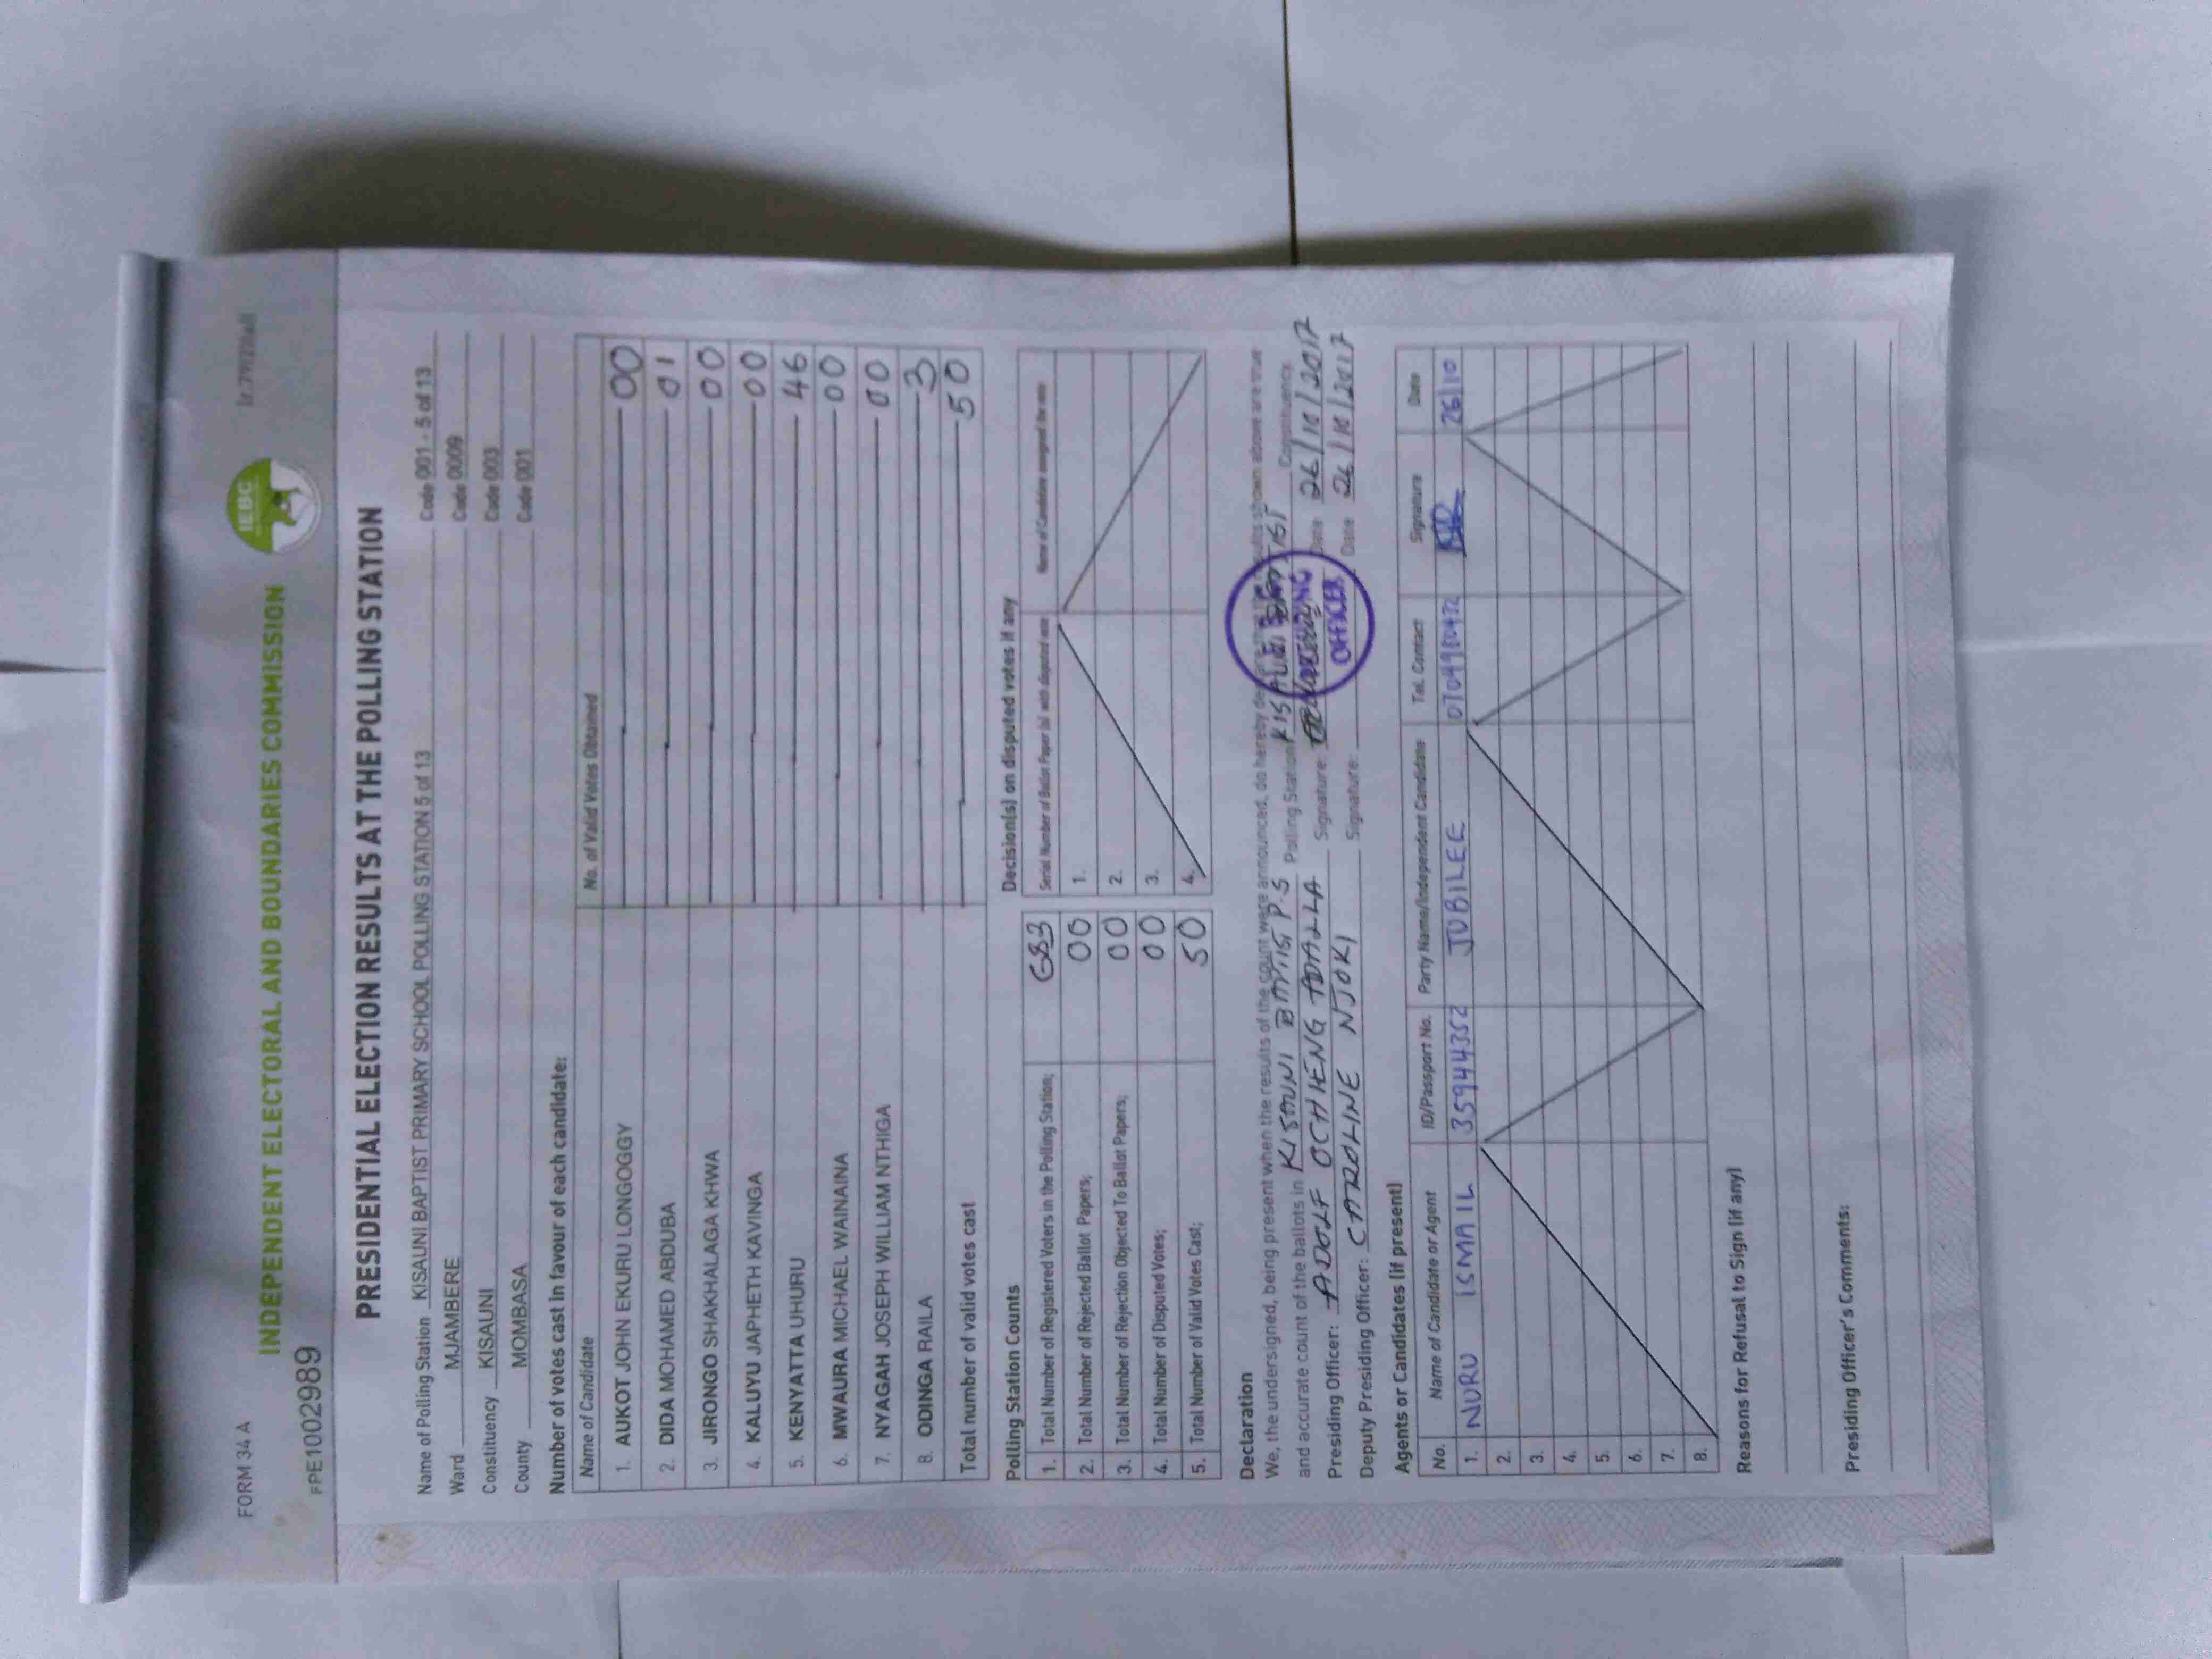 FORM 34 A
INDEPENDENT ELECTORAL AND BOUNDARIES COMMISSION
IEBC
FPE1002989
PRESIDENTIAL ELECTION RESULTS AT THE POLLING STATION
Name of Polling Station KISAUNI BAPTIST PRIMARY SCHOOL POLLING STATION 5 of 13 Code 001 - 5 of 13
Ward MJAMBERE Code 0009
Constituency KISAUNI Code 003
County MOMBASA Code 001
Number of votes cast in favour of each candidate:
Name of Candidate No. of Valid Votes Obtained
1. AUKOT JOHN EKURU LONGOGGY 00
2. DIDA MOHAMED ABDUBA 01
3. JIRONGO SHAKHALAGA KHWA 00
4. KALUYU JAPHETH KAVINGA 00
5. KENYATTA UHURU 46
6. MWAURA MICHAEL WAINAINA 00
7. NYAGAH JOSEPH WILLIAM NTHIGA 00
8. ODINGA RAILA 3
Total number of valid votes cast 50
Polling Station Counts
1. Total Number of Registered Voters in the Polling Station; 683
2. Total Number of Rejected Ballot Papers; 00
3. Total Number of Rejection Objected To Ballot Papers; 00
4. Total Number of Disputed Votes; 00
5. Total Number of Valid Votes Cast; 50
Decision(s) on disputed votes if any
Serial Number of Ballot Paper (s) with disputed vote Name of Candidate assigned the vote
1.
2.
3.
4.
Declaration
We, the undersigned, being present when the results of the count were announced, do hereby declare that the results shown above are true
and accurate count of the ballots in KISAUNI BAPTIST P.S Polling Station KISAUNI Constituency
Presiding Officer: ADOLF OCHIENG ADALLA Signature: Date 26/10/2017
Deputy Presiding Officer: CAROLINE NJOKI Signature: Date 26/10/2017
PRESIDING
OFFICER
Agents or Candidates (if present)
No. Name of Candidate or Agent ID/Passport No. Party Name/Independent Candidate Tel. Contact Signature Date
1. NURU ISMAIL 35944352 JUBILEE 26/10
2.
3.
4.
5.
6.
7.
8.
Reasons for Refusal to Sign (if any)
Presiding Officer's Comments: